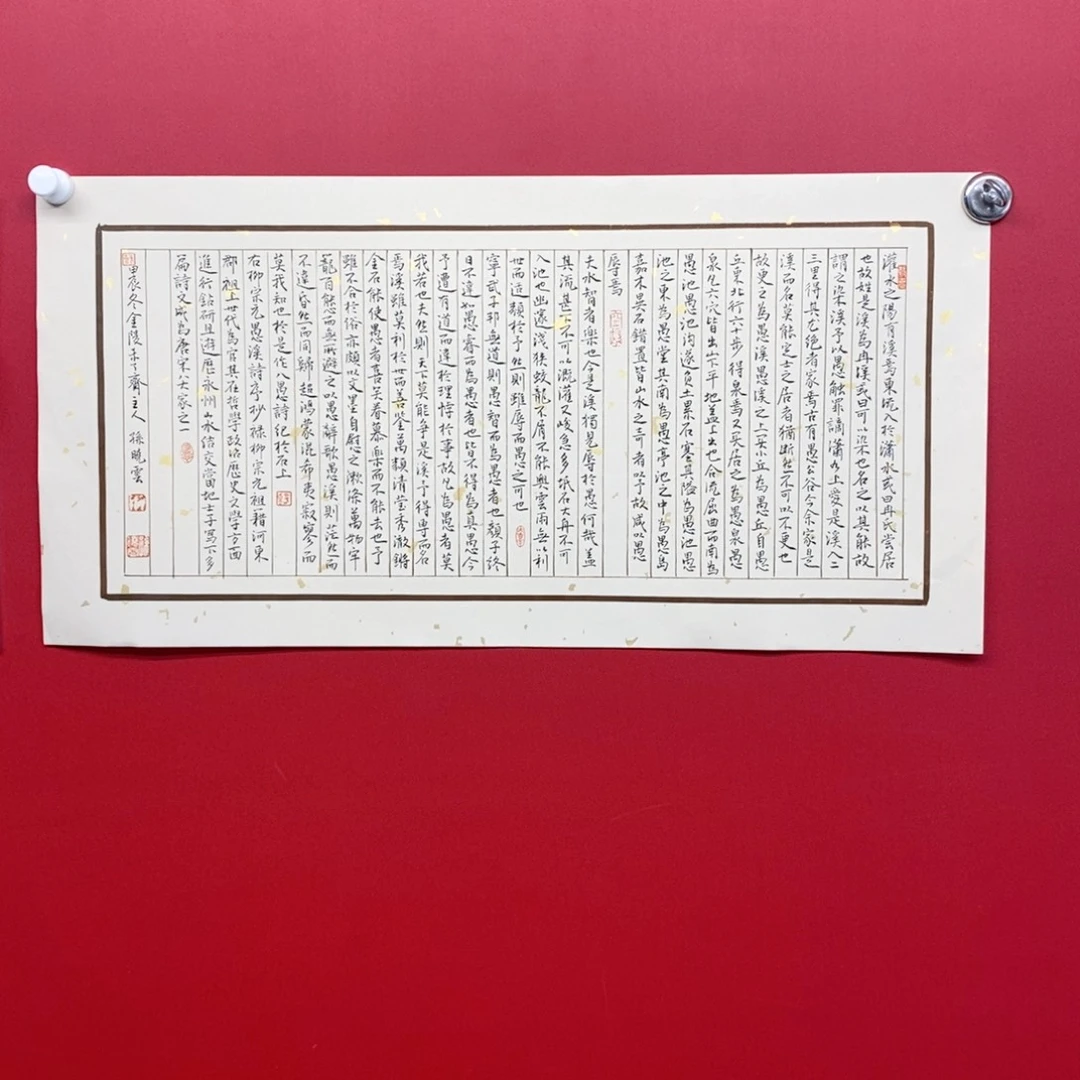 灌水之陽有溪焉東流入於瀟水或曰冉氏嘗居
也故姓是溪為冉溪或曰可以染也名之以其能故
謂之染溪予以愚觸罪謫瀟水上愛是溪入二
三里得其尤絕者家焉古有愚公谷今余家是
溪而名莫能定士之居者猶斷然不可以不更也
故更之為愚溪愚溪之上買小丘為愚丘自愚
丘東北行六十步得泉焉又買居之為愚泉愚
泉凡六穴皆出山下平地蓋上出也合流屈曲而南為
愚溝遂負土累石塞其隘為愚池愚
池之東為愚堂其南為愚亭池之中為愚島
嘉木異石錯置皆山水之奇者以予故咸以愚
辱焉
夫水智者樂也今是溪獨見辱於愚何哉蓋
其流甚下不可以溉灌又峻急多坻石大舟不可
入也幽邃淺狹蛟龍不屑不能興雲雨無以利
世而適類於予然則雖辱而愚之可也
寧武子邦無道則愚智而為愚者也顏子終
日不違如愚睿而為愚者也皆不得為真愚今
予遭有道而違於理悖於事故凡為愚者莫
我若也夫然則天下莫能爭是溪予得專而名
焉溪雖莫利於世而善鑒萬類清瑩秀澈鏘
金石能使愚者喜笑眷慕樂而不能去也予
雖不合於俗亦頗以文墨自慰之漱滌萬物牢
籠百態而無所避之以愚辭歌愚溪則茫然而
不違昏然而同歸超鴻蒙混希夷寂寥而
莫我知也於是作八愚詩紀於石上
右柳宗元愚溪詩序抄祿柳宗元祖籍河東
郡祖上世代為官其在哲學政治歷史文學方面
進行鉆研且遊歷永州山水結交當地士子寫下多
篇詩文成為唐宋八大家之一
甲辰冬金陵 齋主人 孫曉雲